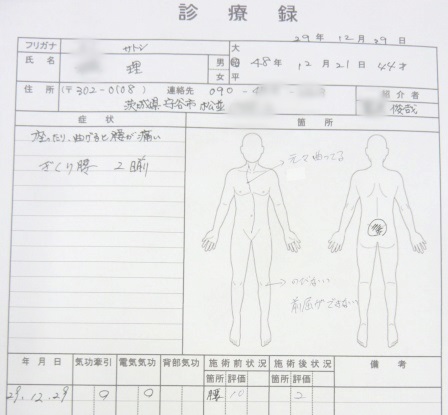 診療録
29年 12月 29日
フリガナ サトシ
氏名 理 男 女 大 昭 平 48年 12月 21日 44才
住所 (〒302-0108) 連絡先 090- 紹介者
茨城県守谷市松並 俊哉
症状 箇所
座ったり、曲がると腰が痛い
ぎくり腰 2回前
元々曲ってる
のびない
前屈ができない
年月日 気功牽引 電気気功 背部気功 施術前状況 施術後状況 備考
箇所 評価 箇所 評価
29.12.29 腰 10 2